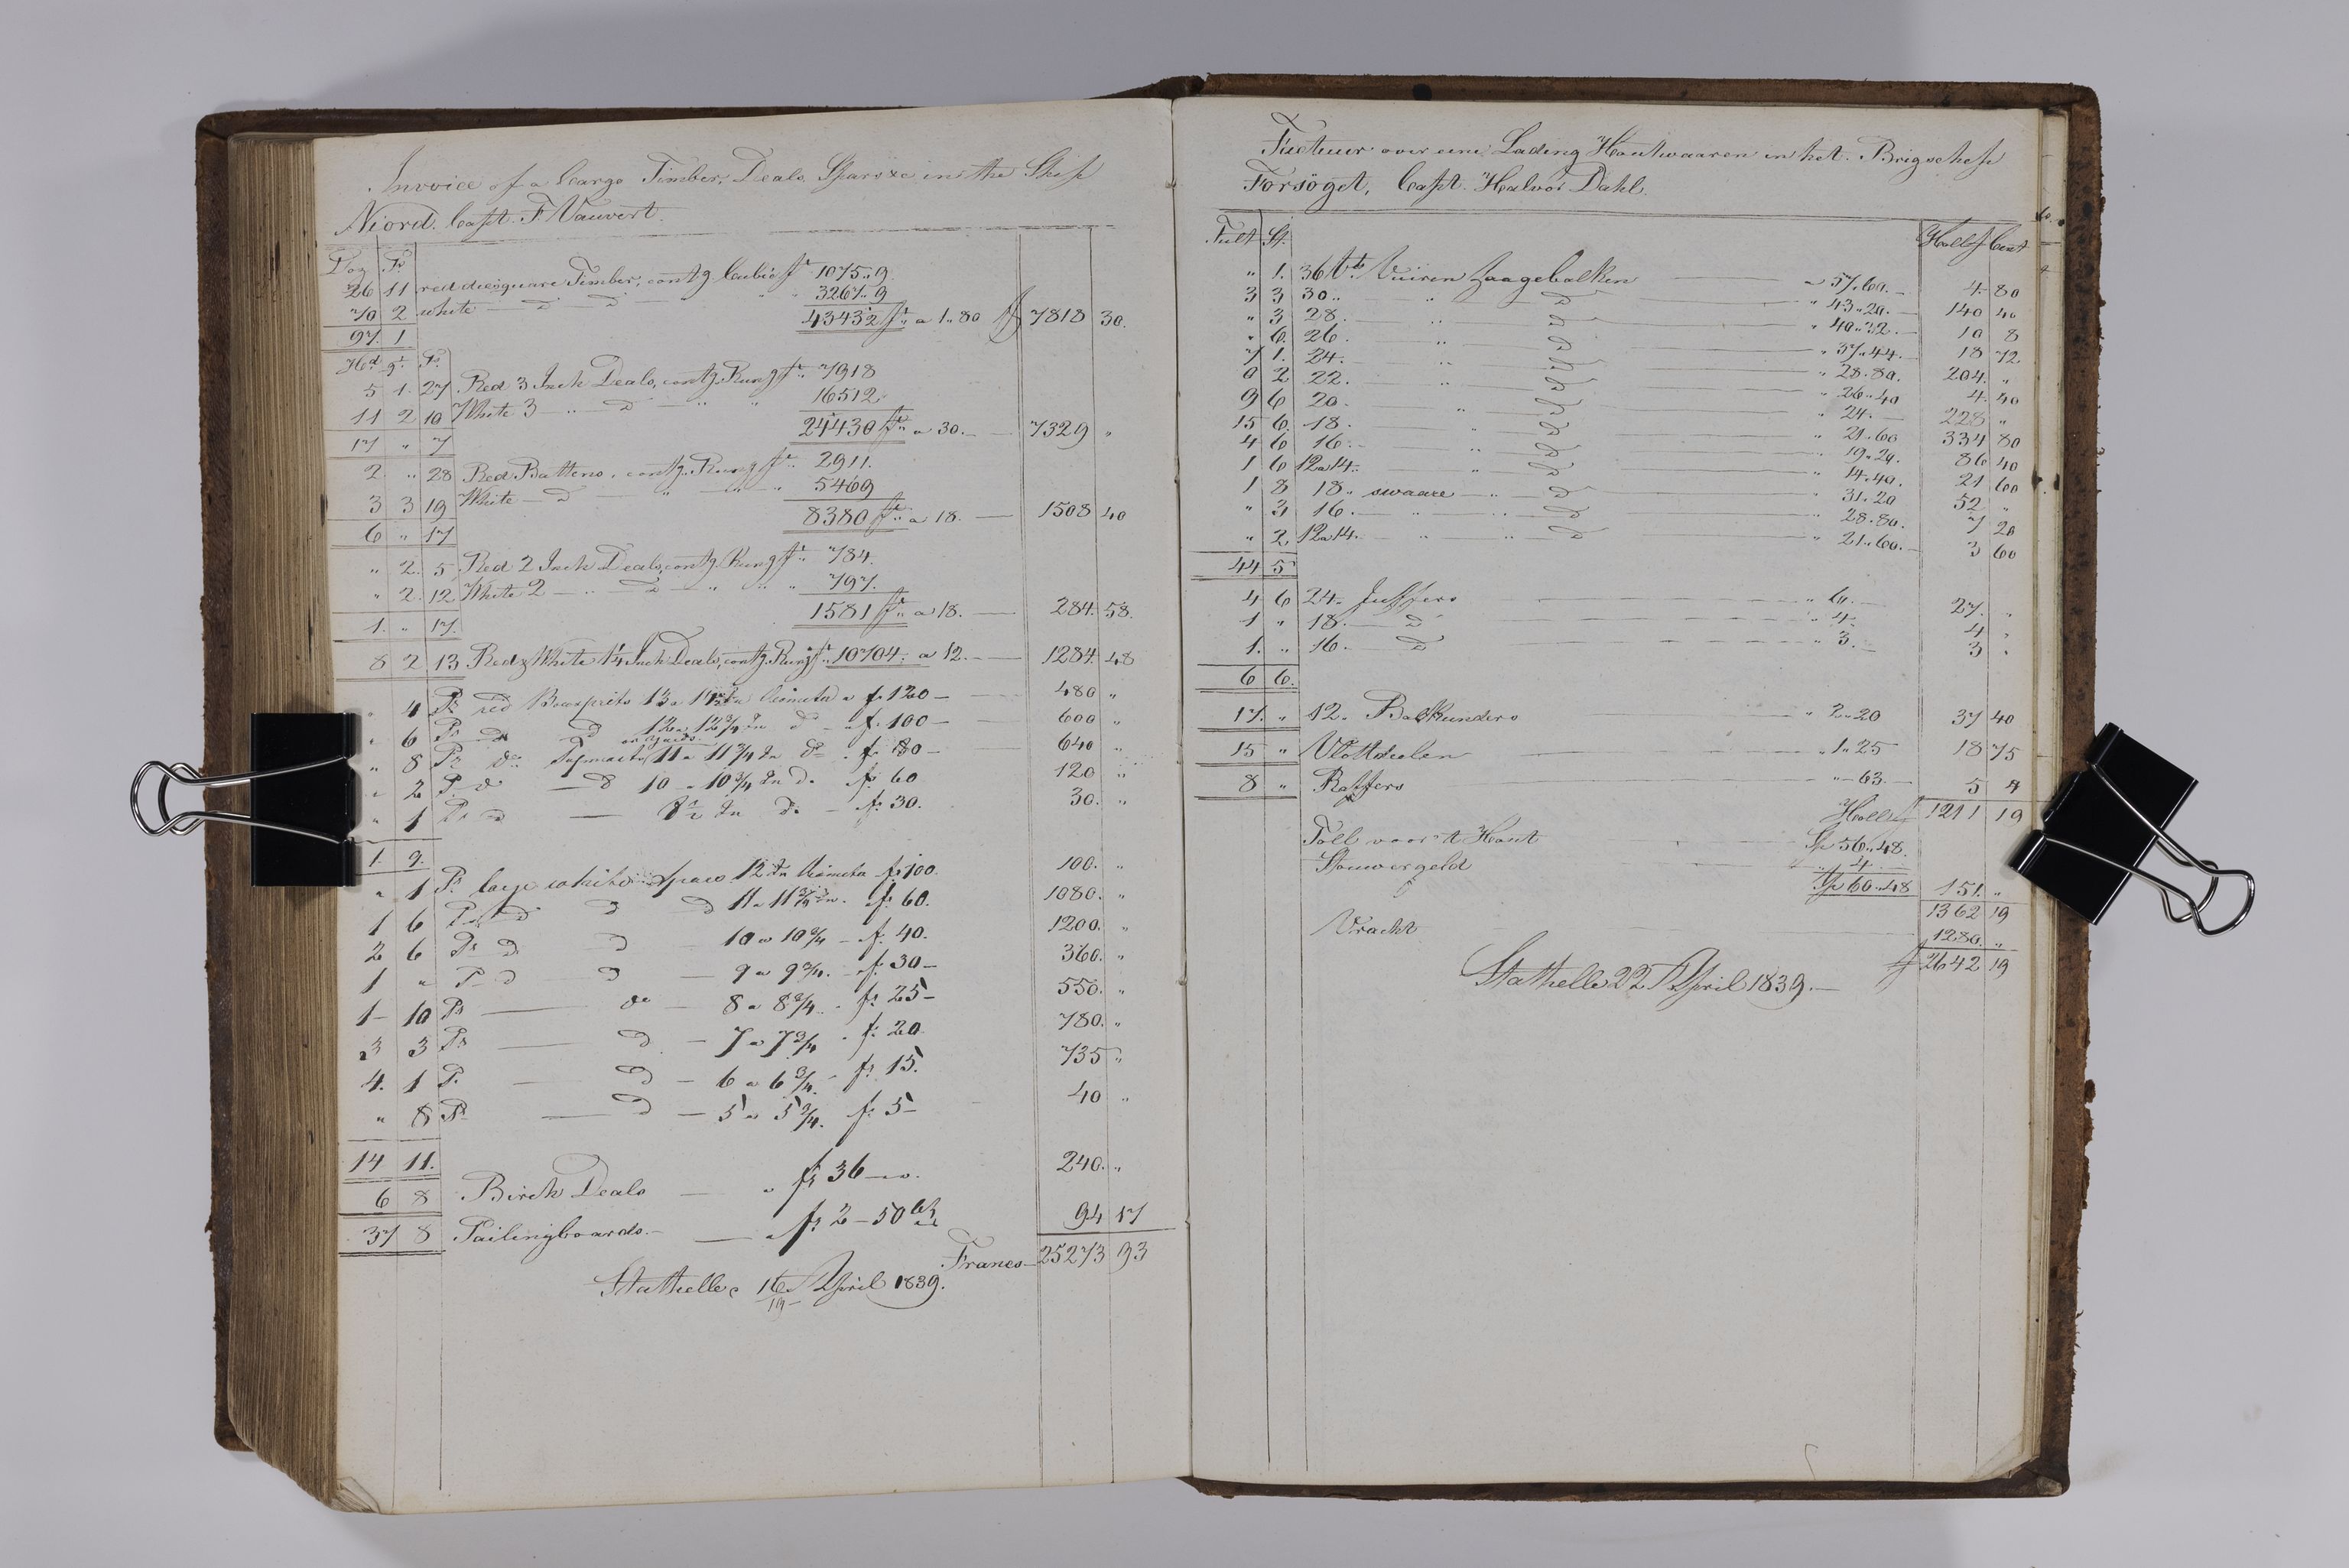 Invoice of a Cargo Timber, Deals, Spars &c in the Ship
Niord. Capt. F. Vauvert.
Doz Ps
26 11 red die square Timber, contg Cubic ft 1075 .. 9
70 2 white — do — do — " " 3267 .. 9
97. 1 4343 .. 2 ft a 1 .. 80 f 7818 30.
Hd qr Ps
5 1. 27 Red 3 Inch Deals, contg Rung ft .. 7918
11 2 10 White 3 — .. — do — .. " 16512
17 " 7 24430 ft .. a 30. — 7329 "
2. " 28 Red Battens, contg. Rung ft .. 2911.
3 3 19 White — do — " .. " 5469
6 " 17 8380 ft .. a 18. — 1508 40
" 2. 5 Red 2 Inch Deals, contg Rung ft .. 784.
" 2. 12 White 2 — .. — do — " .. " 797.
1. " 17. 1581 ft .. a 18. — 284. 58.
8 2 13 Red & White 1¼ Inch Deals, contg. Rung ft .. 10704. a 12. — 1284. 48
" 4 Ps red Bowsprits 13 a Diameter a f. 120 — 480 "
" 6 Ps — do do 12 a 12¾ In do — a f. 100 — 600 "
" 8 Ps do Topmasts or yards 11 a 11¾ In do . f. 80 — 640 "
" 2 Ps do — do 10 a 10¾ In do f. 60 120 "
" 1 Ps do — 8½ In do — f. 30. 30. "
1. 9.
" 1 Ps large white spars 12 In Diameter f. 100. 100. "
1 6 Ps do do do 11 a 11¾ In. f. 60. 1080. "
2 6 Ps do do 10 a 10¾ — f. 40. 1200. "
1 " Ps do do — 9 a 9¾. — f. 30 — 360. "
1 — 10 Ps — do — 8 a 8¾ . f. 25 — 550. "
3 3 Ps — do — 7 a 7¾ . f. 20 780. "
4. 1 Ps — do — 6 a 6¾ — f. 15. 735 "
" 8 Ps — do — 5 a 5¾. f. 5 — 40 "
14 11.
6 8 Birch Deals — " f. 36 — 240. "
37 8 Pailingboards. — — a f. 2 — 50 94 17
Francs — 25273 93
Stathelle 16 April 1839.
19
Factuur over eene Lading Houtwaaren in het Brigschip
Forsöget, Capt. Halvor Dahl.
Tult St. Holl f Cent
" 1. 36 Vuiren Zaagebalken — a 57.60. — 4. 80
3 3 30 .. .. do — " 43 .. 20. — 140 40
" 3 28. .. do — " 40 .. 32. — 10 8
" 6. 26. .. do — " 37 .. 44. — 18 72
7 1. 24. .. do — " 28.80. 204. "
0 2 22. .. do — " 26 .. 40 4. 40
9 6 20. .. do — " 24. — 228 "
15 6. 18. .. do — " 21.60 334 80
4 6 16. .. do — " 19 .. 20. 86 40
1 6 12 a 14. .. do — " 14.40. 21 60
1 8 18 .. swaare — .. — do — " 31.20 52 "
" 3 16. — .. .. do — " 28.80. 7 20
" 2 12 a 14. — .. .. do — " 21 .. 60. — 3 60
44 5
4 6 24. Juffers — " 6. — 27. "
1 " 18. — do — " 4. 4 "
1. " 16. — do — " 3. — 3 "
6 6.
17. " 12. Balkunders — " 2 .. 20 37 40
15 " Vlottdeelen — " 1 .. 25 18 75
8 " Raffers — " — 63. — 5 4
Holl f 1211 19
Toll voor 't Hout — Sp 56 .. 48.
Stouwergeld — " 4. —
Sp 60 .. 48 151. "
1362 19
Vracht — 1280. "
f 2642 19
Stathelle 22 April 1839. —